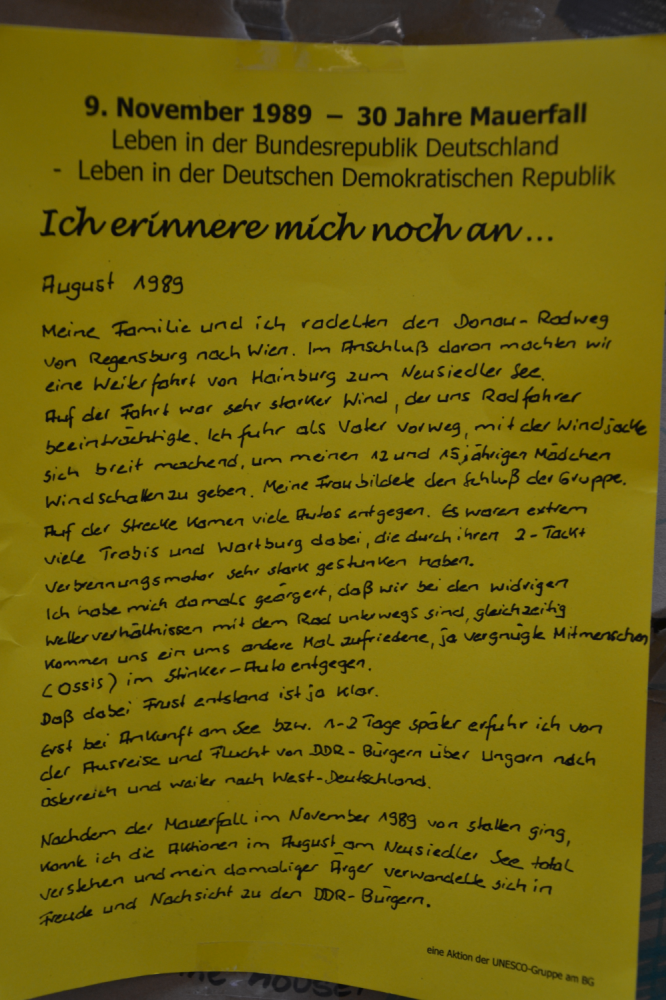 9. November 1989 – 30 Jahre Mauerfall
Leben in der Bundesrepublik Deutschland
- Leben in der Deutschen Demokratischen Republik
Ich erinnere mich noch an...
August 1989
Meine Familie und ich radelten den Donau-Radweg
von Regensburg nach Wien. Im Anschluß daran machten wir
eine Weiterfahrt von Hainburg zum Neusiedler See.
Auf der Fahrt war sehr starker Wind, der uns Radfahrer
beeinträchtigte. Ich fuhr als Vater vorweg, mit der Windjacke
sich breit machend, um meinen 12 und 15 jährigen Mädchen
Windschatten zu geben. Meine Frau bildete den Schluß der Gruppe.
Auf der Strecke kamen viele Autos entgegen. Es waren extrem
viele Trabis und Wartburg dabei, die durch ihren 2-Takt
Verbrennungsmotor sehr stark gestunken haben.
Ich habe mich damals geärgert, daß wir bei den widrigen
Wetterverhältnissen mit dem Rad unterwegs sind, gleichzeitig
kommen uns ein ums andere Mal zufriedene, ja vergnügte Mitmenschen
(Ossis) im Stinker-Auto entgegen.
Daß dabei Frust entstand ist ja klar.
Erst bei Ankunft am See bzw. 1-2 Tage später erfuhr ich von
der Ausreise und Flucht von DDR-Bürgern über Ungarn nach
Österreich und weiter nach West-Deutschland.
Nachdem der Mauerfall im November 1989 von statten ging,
konnte ich die Aktionen im August am Neusiedler See total
verstehen und mein damaliger Ärger verwandelte sich in
Freude und Nachsicht zu den DDR-Bürgern.
eine Aktion der UNESCO-Gruppe am BG